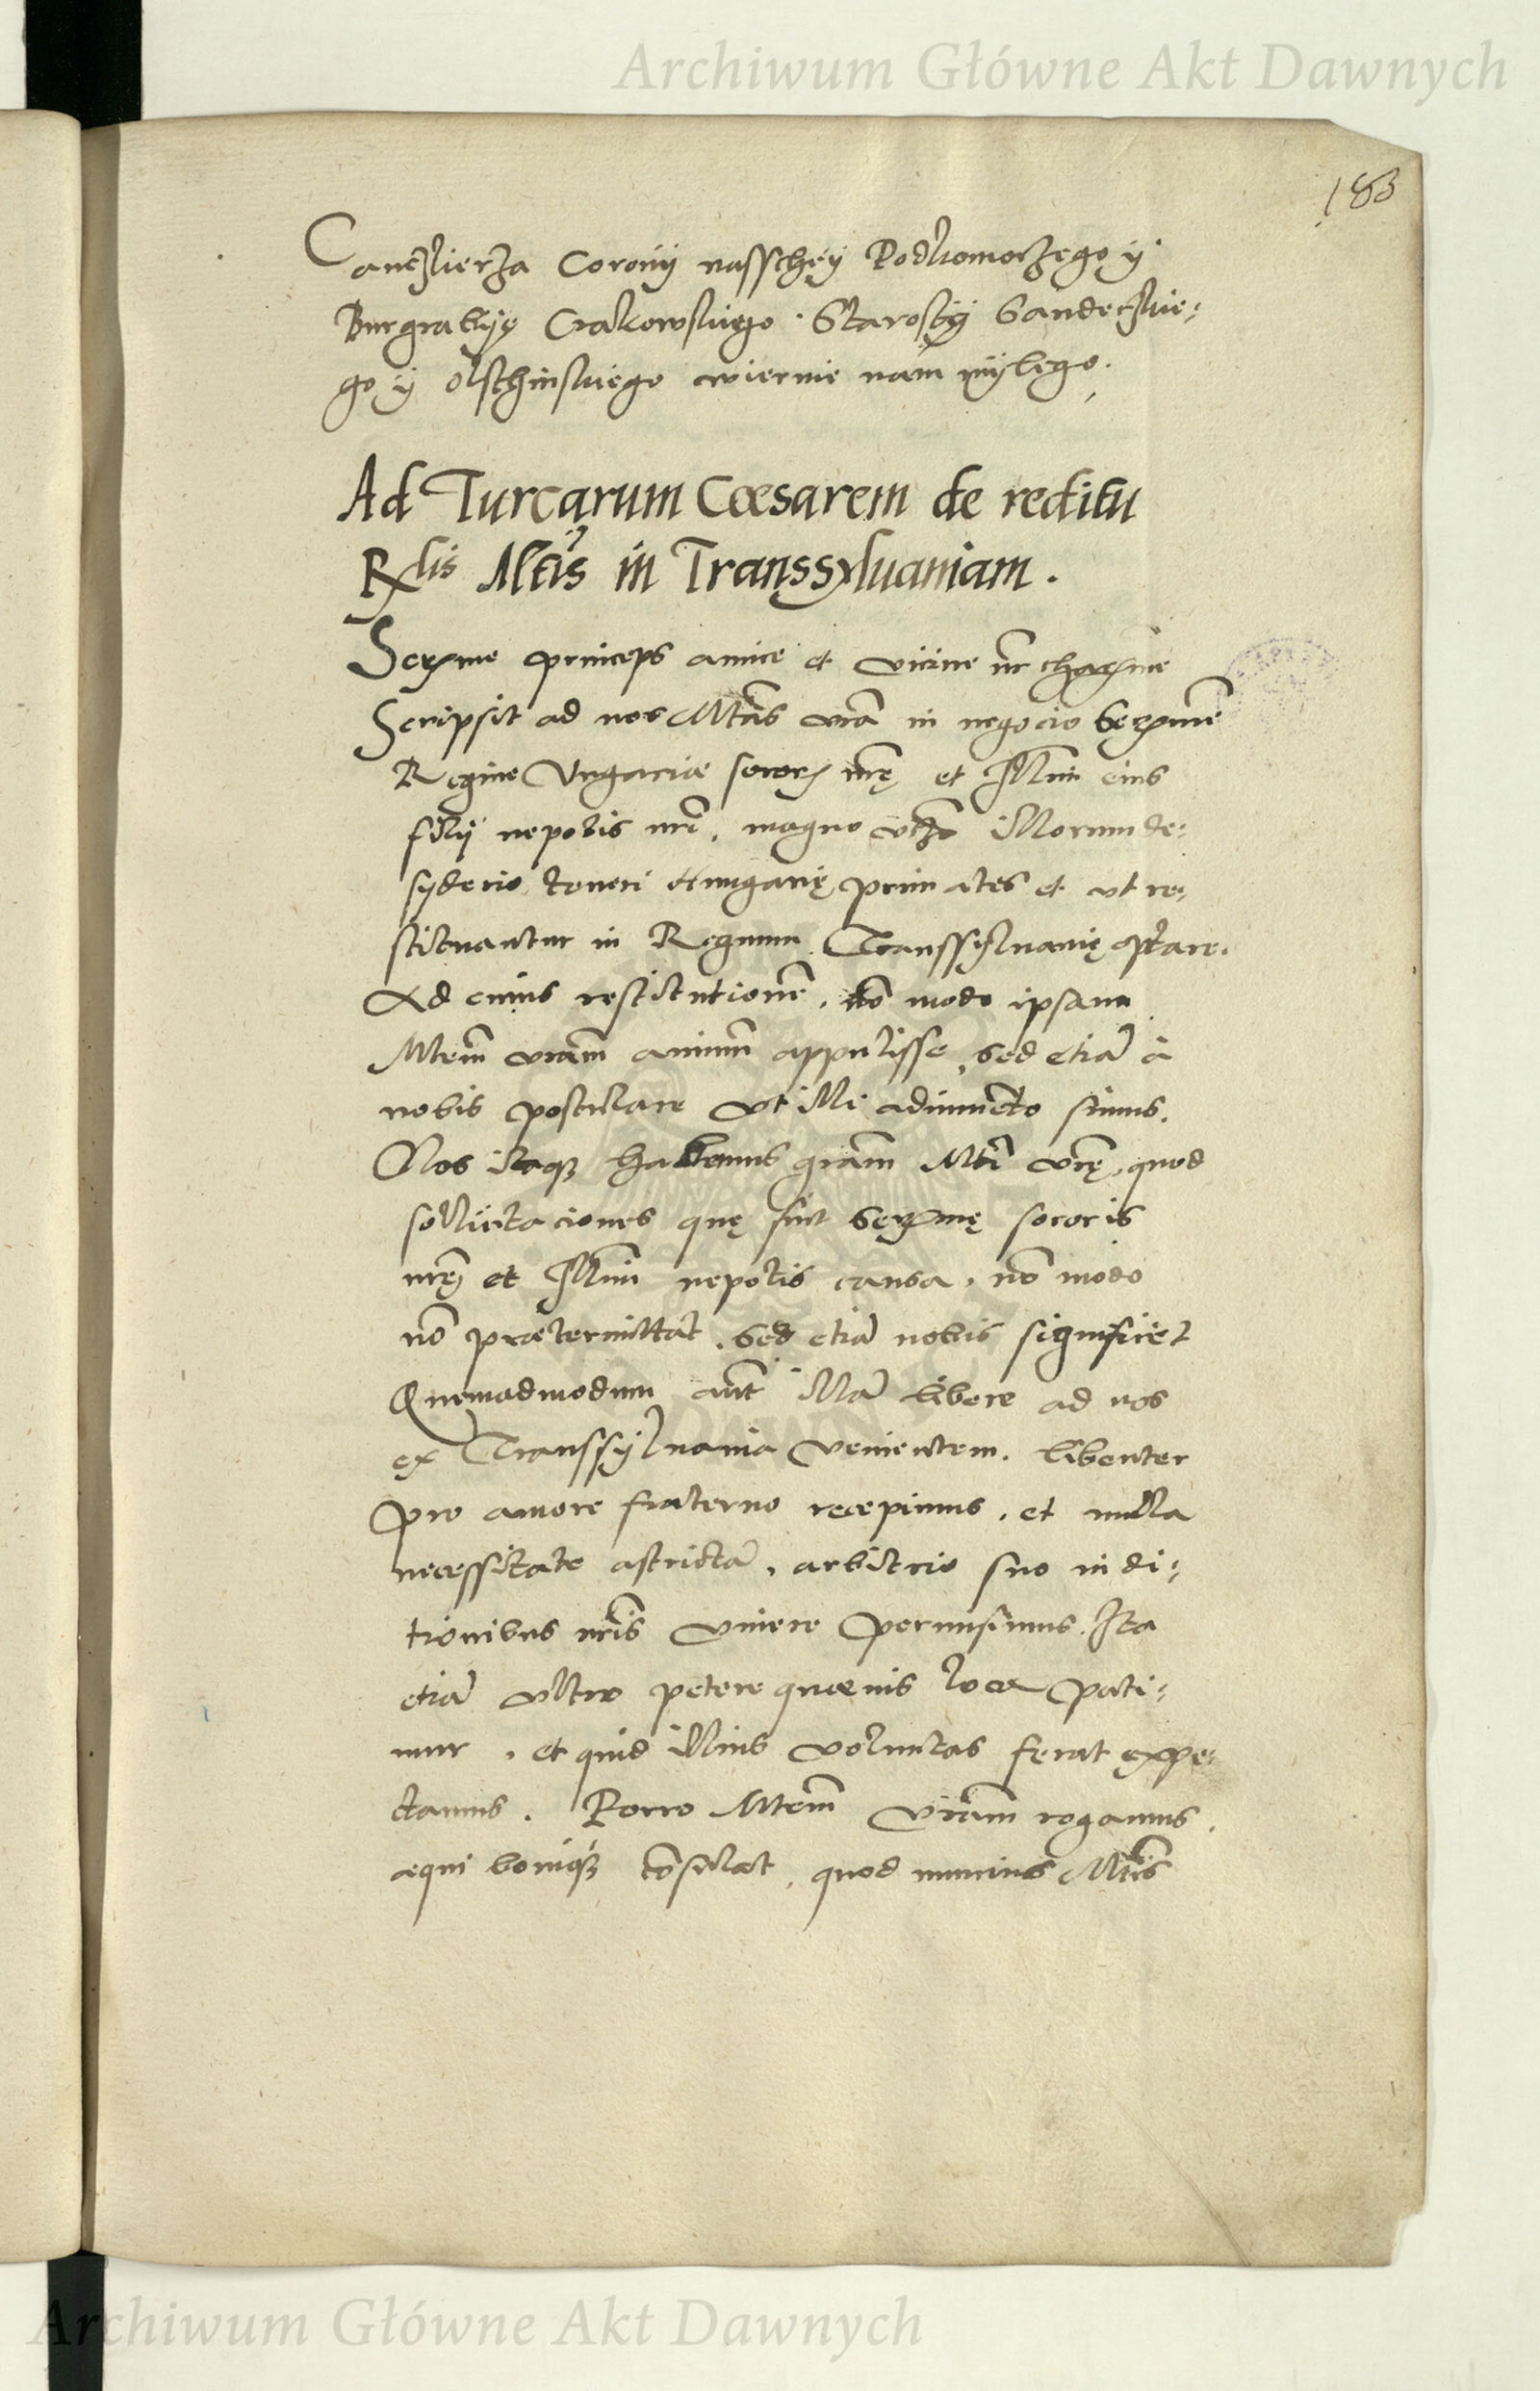 Archiwum Główne Akt Dawnych
183
Canczlierza Corony nasschey Podkomorzego y
Burgrabye Crakowskiego Starosty Sandeczkie-
go y olschinskiego wiernie nam mylego.
Ad Turcarum Cæsarem de reditu
Rglis Mtis in Transsyluaniam.
Serme princeps amice et vicine nr charme
Scripsit ad nos Mtas vra in negocio Serme
Regine Vngariæ soror nrę et Illmi eius
filij nepotis nri, magno illorum de-
syderio teneri Hungarię primates et ut re-
stituantur in Regnum Transsyluanię optare.
Ad cuius restitutione, no modo ipsam
Mtem vram animu appulisse, sed etia à
nobis postulare ut illi adiumeto simus.
Nos itaq habemus gram Mti vrę, quod
sollicitaciones quę sint Sermę sororis
nrę et Illmi nepotis causa, no modo
no prætermittat, sed etia nobis significet
Quemadmodum aut illa libere ad nos
ex Transsyluania venientem, libenter
pro amore fraterno recepimus, et nulla
necessitate astricta, arbitrio suo in di-
tionibus nris viuere permisimus. Ita
etia ultro petere quæuis loca pati-
mur, et quid illius voluntas ferat expe-
ctamus. Porro Mtem vram rogamus,
æqui boniq consulat, quod nuncius Mtis
Archiwum Główne Akt Dawnych